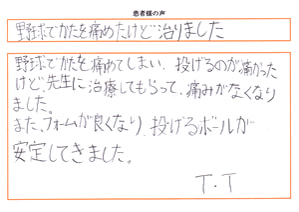 患者様の声
野球でかたを痛めたけど治りました
野球でかたを痛めてしまい、投げるのが痛かった
けど、先生に治療してもらって、痛みがなくなり
ました。
また、フォームが良くなり、投げるボールが
安定してきました。
T.T